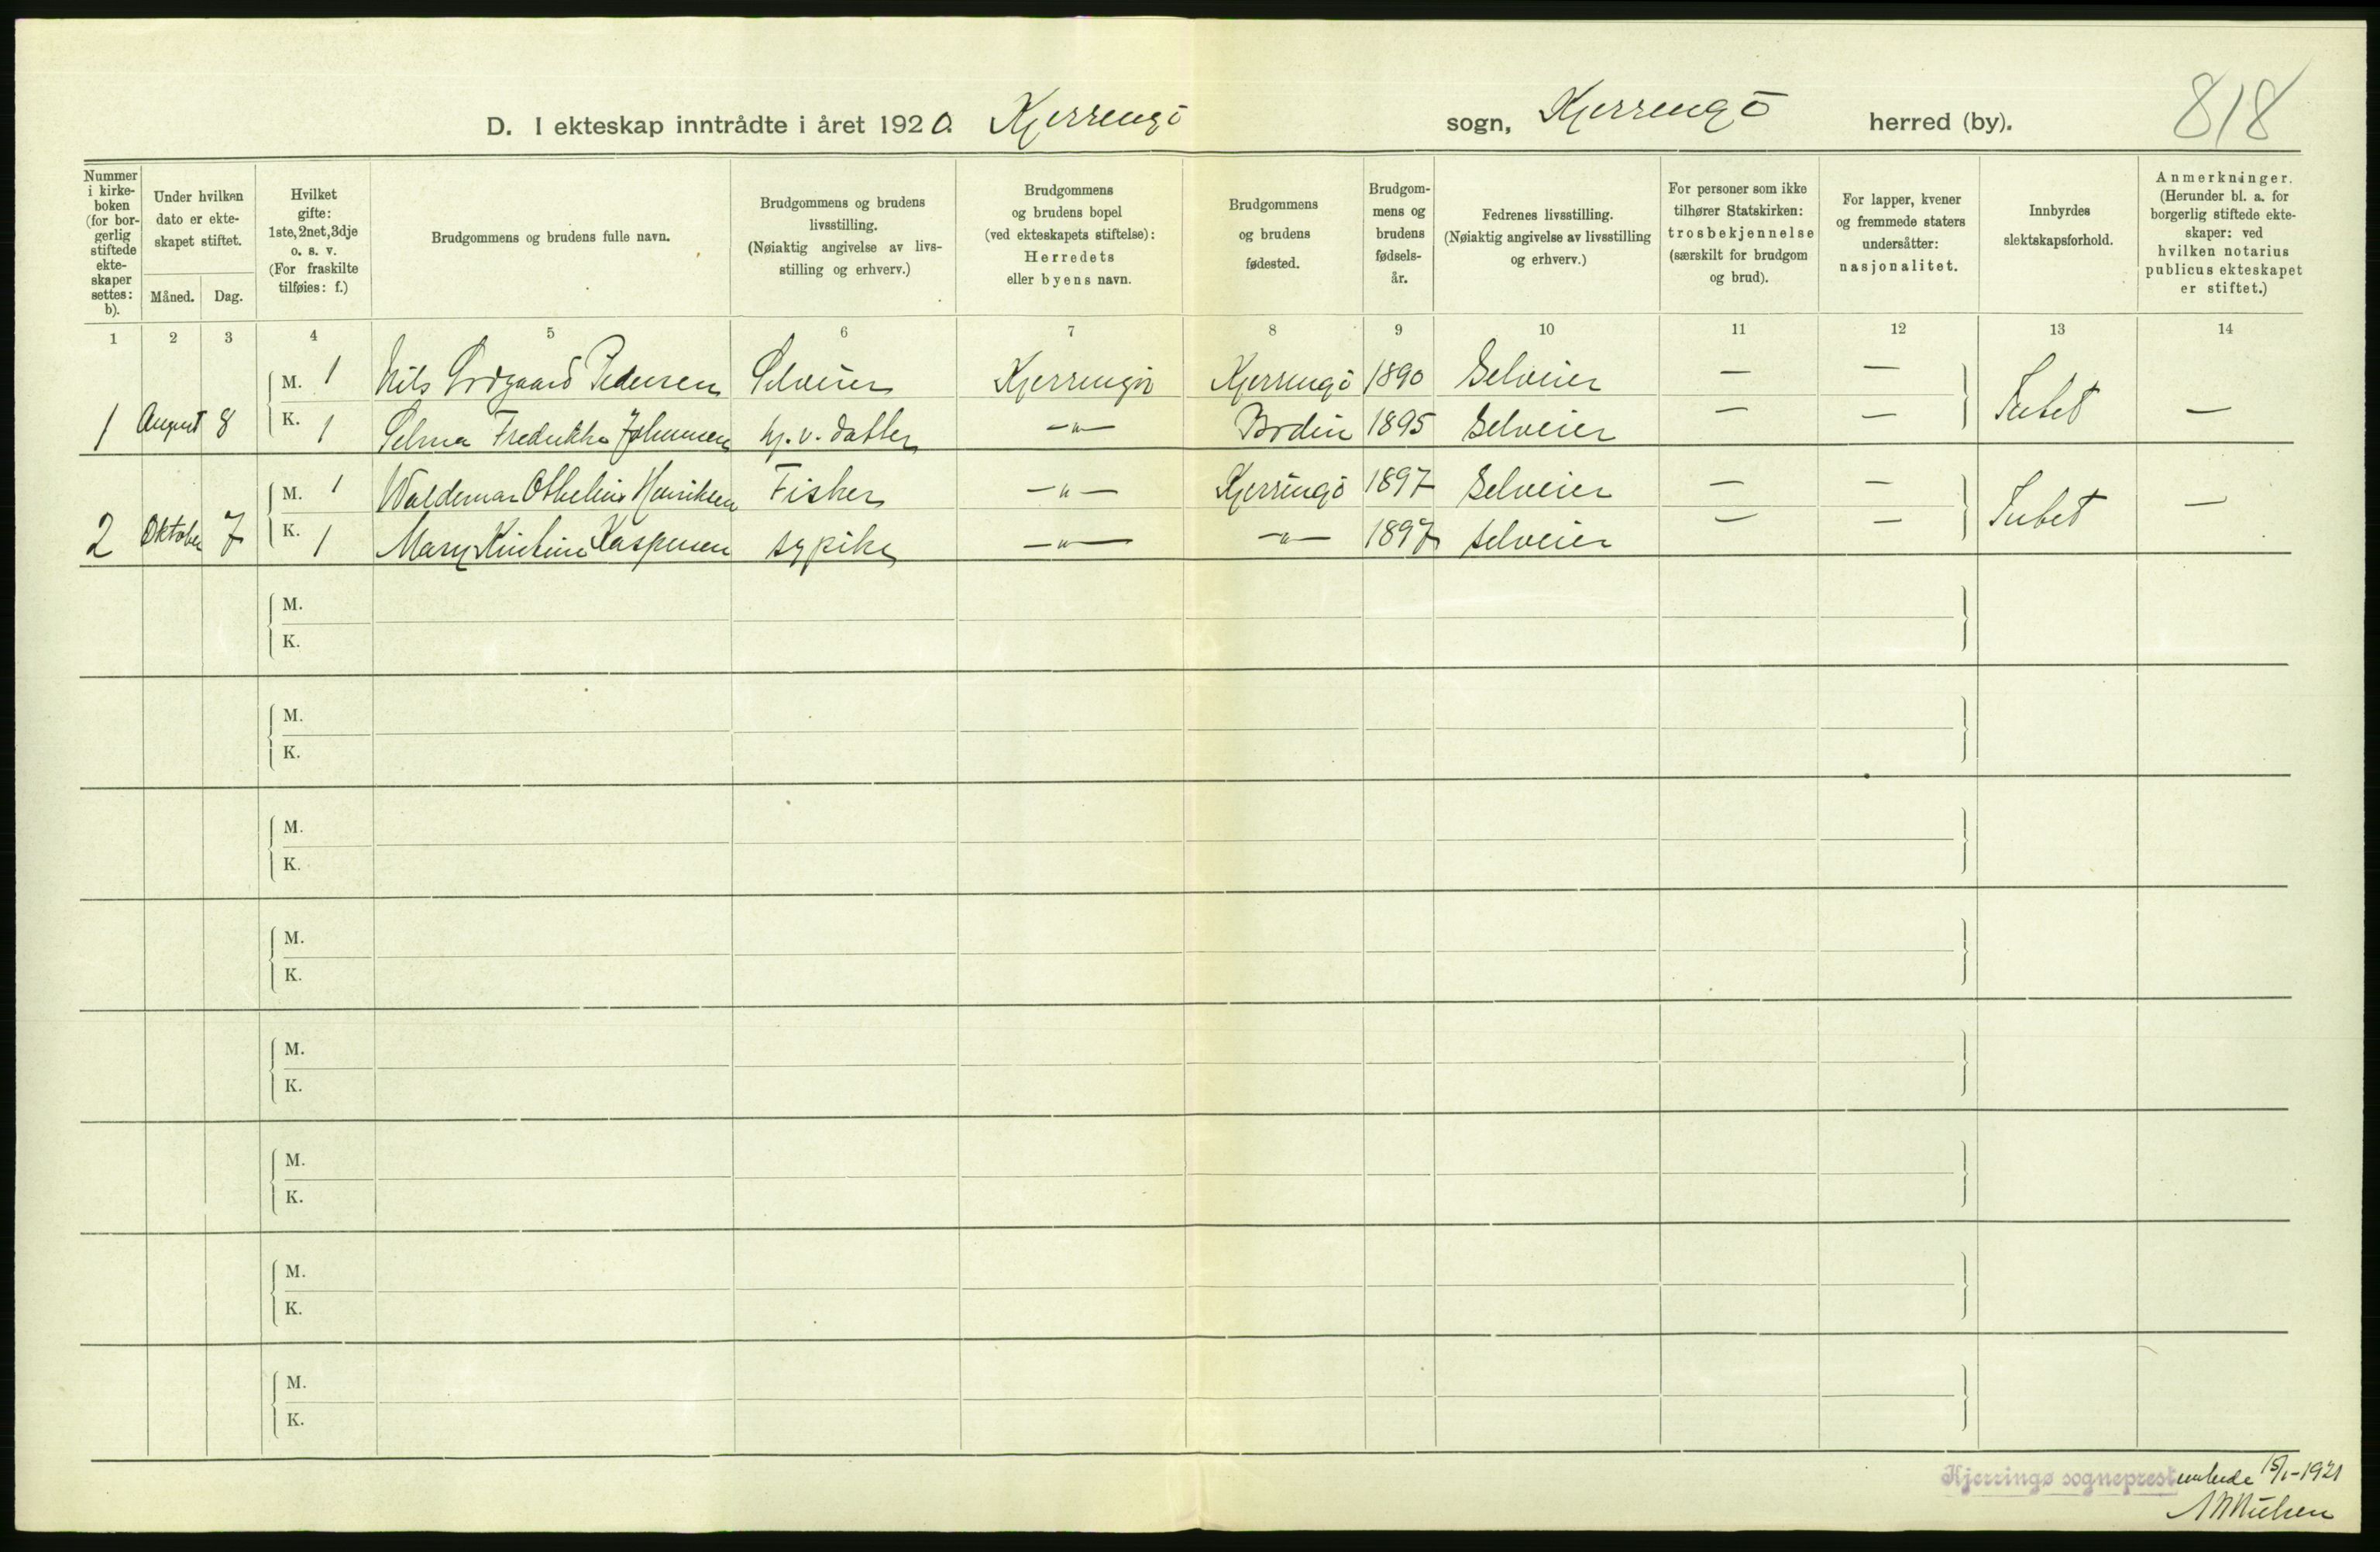 D. I ekteskap inntrådte i året 1920. Kjerringö sogn, Kjerringö herred (by). 818
Nummer i kirke-boken (for bor-gerlig stiftede ekte-skaper settes: b).
Under hvilken dato er ekte-skapet stiftet.
Måned. Dag.
Hvilket gifte: 1ste, 2net, 3dje o. s. v. (For fraskilte tilføies: f.)
Brudgommens og brudens fulle navn.
Brudgommens og brudens livsstilling. (Nøiaktig angivelse av livs-stilling og erhverv.)
Brudgommens og brudens bopel (ved ekteskapets stiftelse): Herredets eller byens navn.
Brudgommens og brudens fødested.
Brudgom-mens og brudens fødsels-år.
Fedrenes livsstilling. (Nøiaktig angivelse av livsstilling og erhverv.)
For personer som ikke tilhører Statskirken: trosbekjennelse (særskilt for brudgom og brud).
For lapper, kvener og fremmede staters undersåtter: nasjonalitet.
Innbyrdes slektskapsforhold.
Anmerkninger. (Herunder bl. a. for borgerlig stiftede ekte-skaper: ved hvilken notarius publicus ekteskapet er stiftet.)
1 2 3 4 5 6 7 8 9 10 11 12 13 14
M. 1 Nils Pedersen Selveier Kjerringö Kjerringö 1890 Selveier — —
1 August 8 K. 1 Selma Fredrikke Johansen hj. v. datter —"— Bodin 1895 Selveier — — Intet —
M. 1 Waldemar Othelius Henriksen Fisker —"— Kjerringö 1897 Selveier — —
2 Oktober 7 K. 1 Mary Kristine Kaspersen sypike —"— —"— 1897 selveier — — Intet —
M.
K.
M.
K.
M.
K.
M.
K.
M.
K.
M.
K.
M.
K.
M.
K.
Kjerringø sogneprestembede 15/1-1921